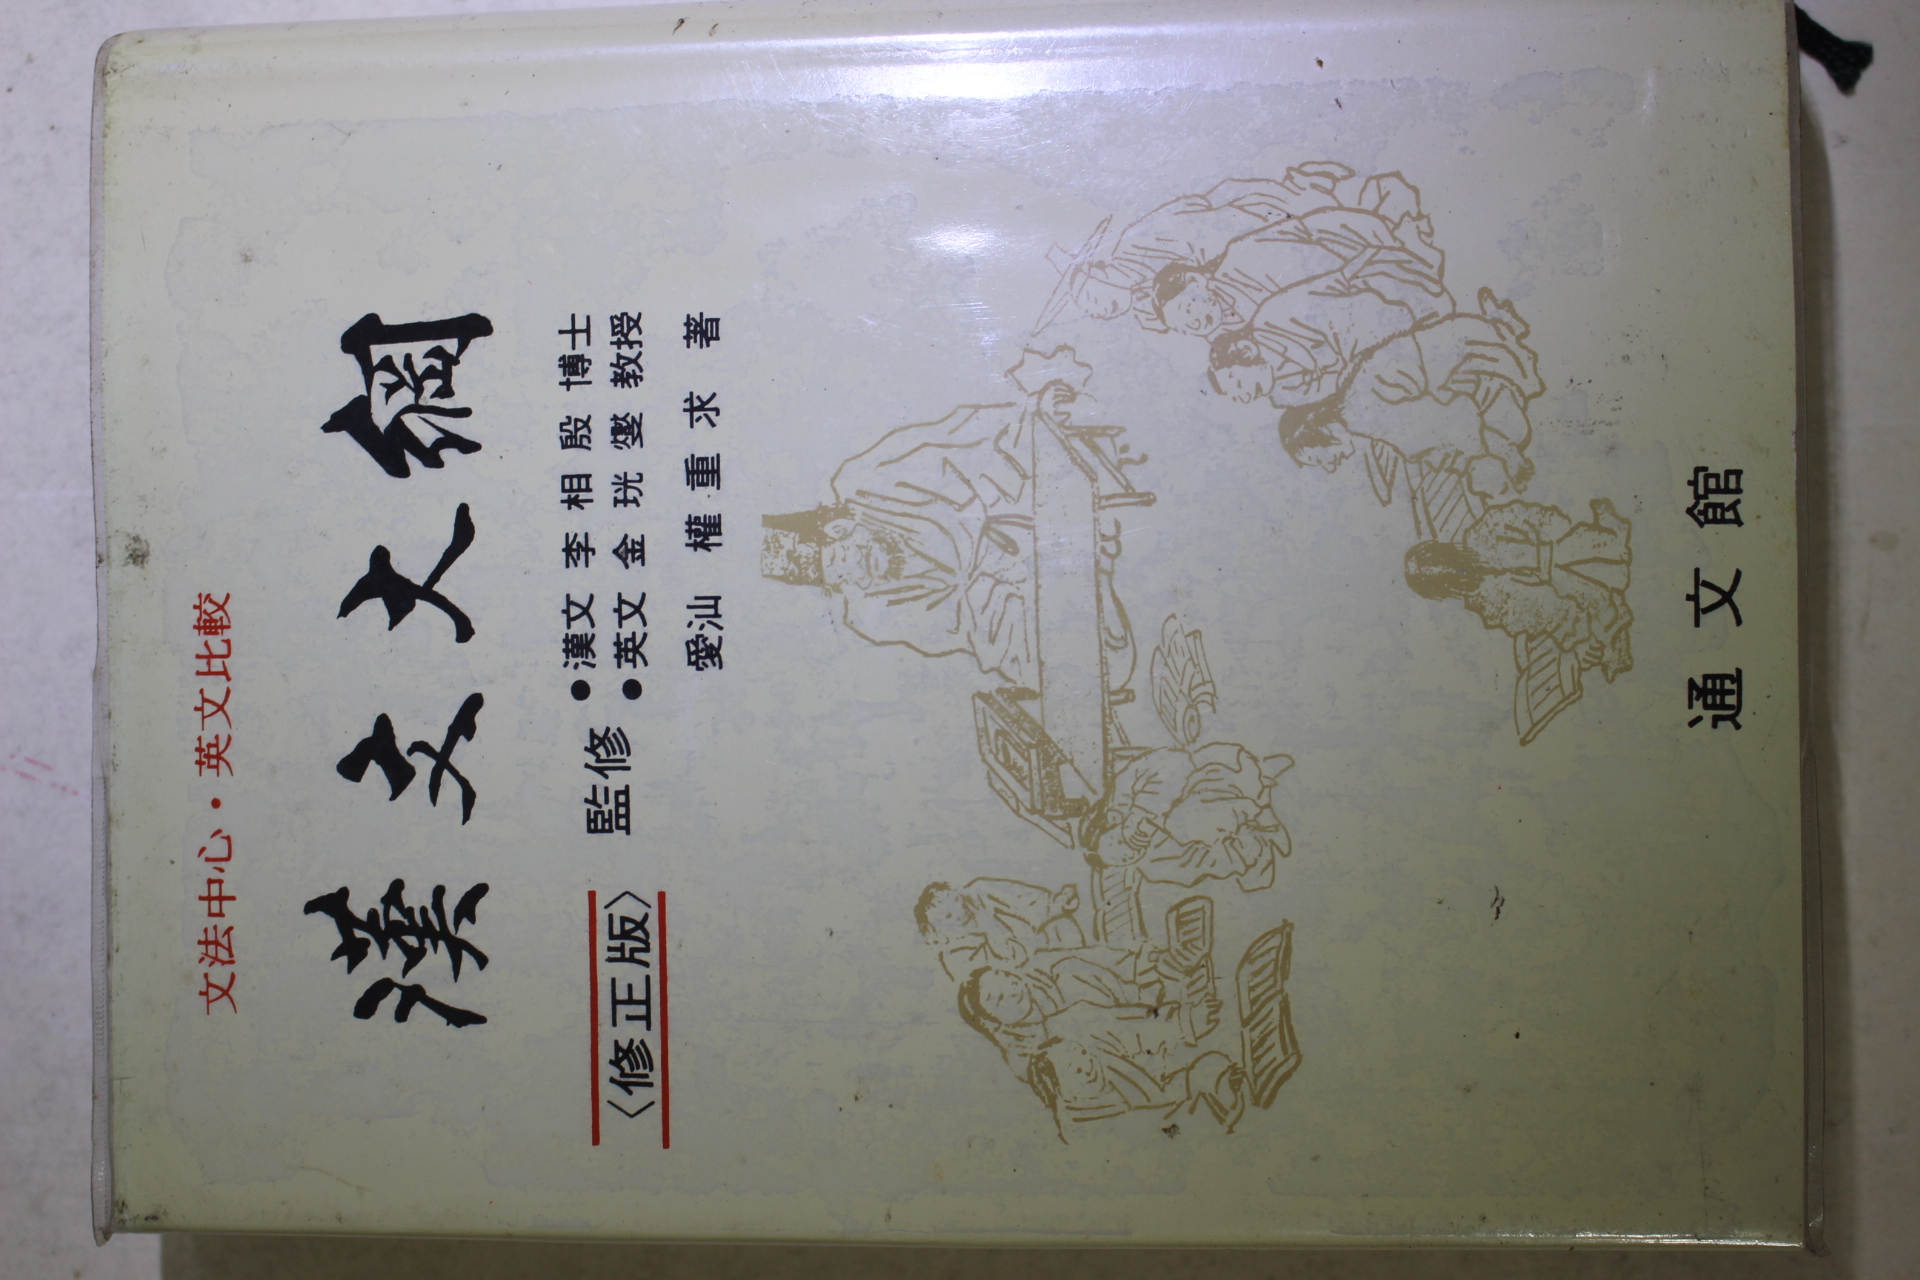 文法中心・英文比較
漢文大綱
〈修正版〉
監修
●漢文 李相殷 博士
●英文 金珖燮 教授
愛汕 權重求 著
通文館